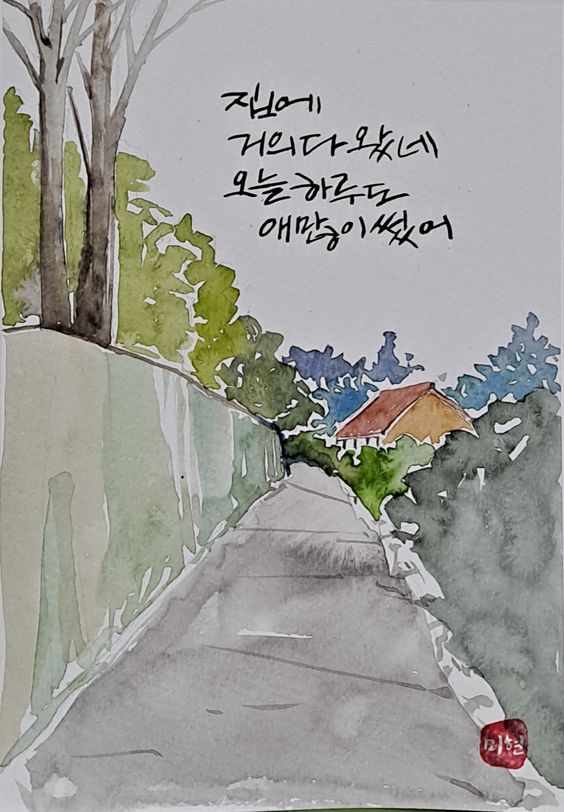 집에
거의다 왔네
오늘하루도
애많이썼어
미현